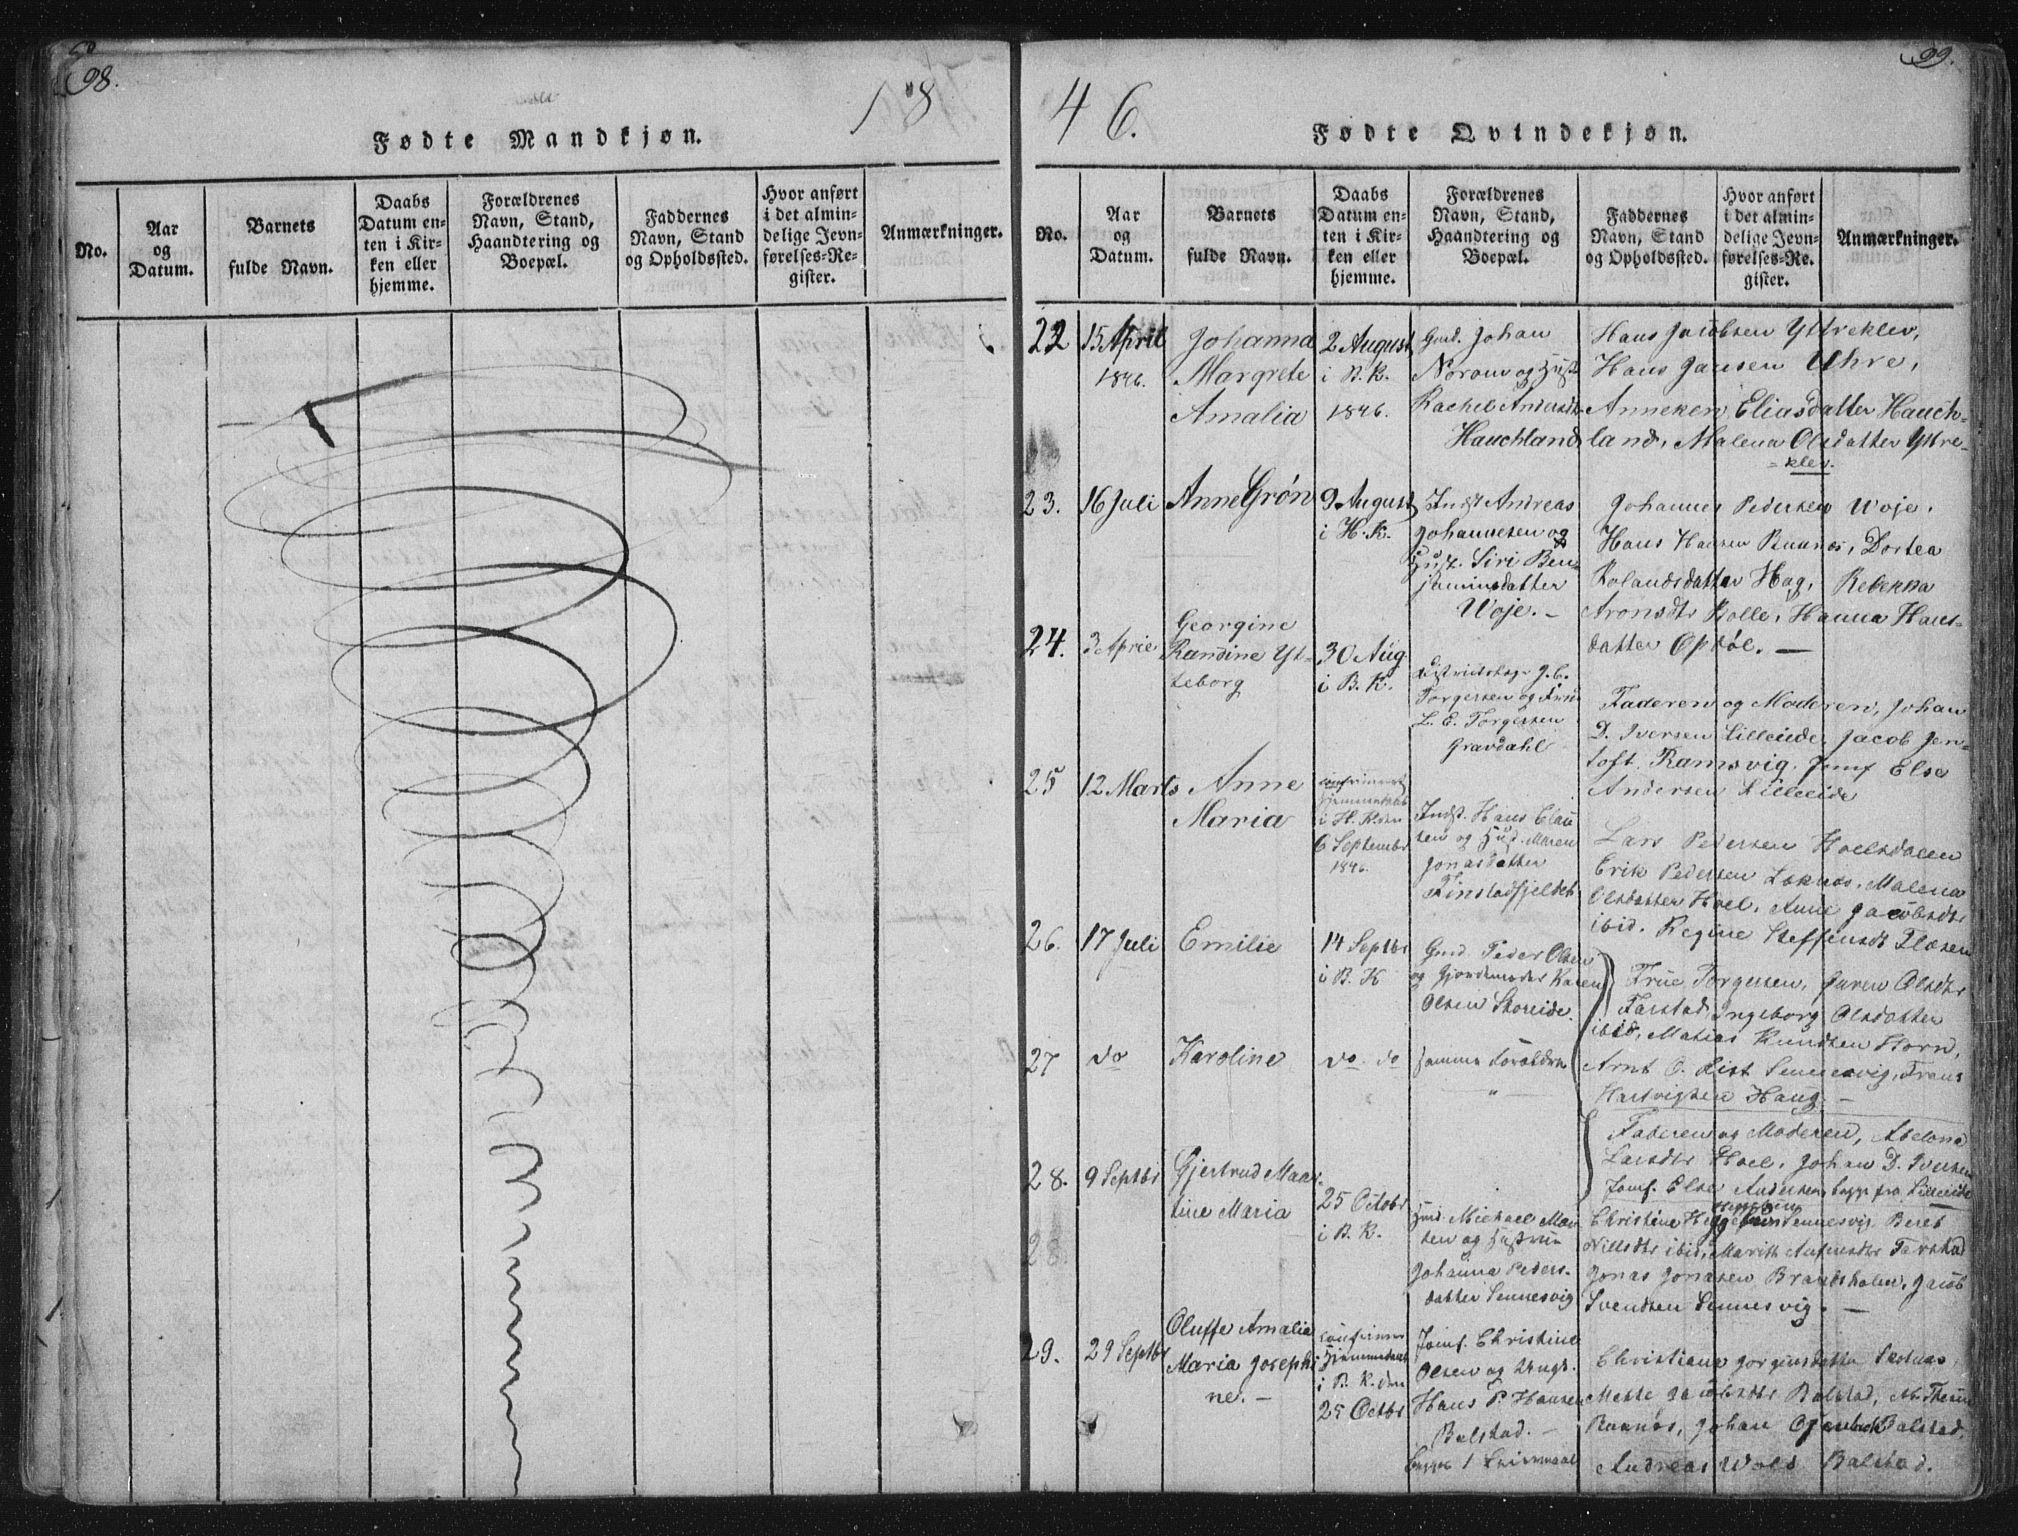 98.
18
Fødte Mandkjøn.
No.
Aar
og
Datum.
Barnets
fulde Navn.
Daabs
Datum en-
ten i Kir-
ken eller
hjemme.
Forældrenes
Navn, Stand,
Haandtering og
Boepæl.
Faddernes
Navn, Stand
og Opholdssted.
Hvor anført
i det almin-
delige Jevn-
førelses-Re-
gister.
Anmærkninger.
99.
46.
Fødte Qvindekjøn.
No.
Aar
og
Datum.
Barnets
fulde Navn.
Daabs
Datum en-
ten i Kir-
ken eller
hjemme.
Forældrenes
Navn, Stand,
Haandtering og
Boepæl.
Faddernes
Navn, Stand
og Opholdssted.
Hvor anført
i det almin-
delige Jevn-
førelses-Re-
gister.
Anmærkninger.
22
15 April
1846.
Johanna
Margrete
Amalia
2 August
i B. K.
1846.
Gmd. Johan
Norum og Hust
Rachel Andersdtr
Hauchland
Hans Jacobsen Yttreklev,
Hans Jansen Uhre,
Anneken Eliasdatter Hauch-
land, Malena Olsdatter Yttre-
klev.
23.
16 Juli
Anne Grøn
9 August
i H. K.
Indst Andreas
Johannesen og
Hust. Siri Ben-
jaminsdatter
Woje. -
Johannes Pedersen Woje.
Hans Hansen Buxnæs, Dortea
Rolandsdatter Hag, Rebekka
Aronsdtr Bolle, Hanna Hans-
datter Opdøl. -
24.
3 April
Georgine
Randine Yt-
teborg
30 Aug
i B. K.
Districtslæge J. C.
Torgersen og Frue
L. E. Torgersen
Gravdahl
Faderen og Moderen, Johan
D. Iversen Lilleeide, Jacob Jen-
toft, Ramsvig. Jomf Else
Andersen Lilleeide
25
12 Marts
Anne
Maria
confirmeret
Hjemmedaab
i H. K. den
6 Septembr
1846.
Indst. Hans Clau
sen og Hust. Maren
Jonasdatter
Finstadfjeldet
Lars Pedersen Hoelsdalen
Erik Pedersen Leknæs, Malena
Olsdatter Hoel, Anne Jacobsdtr
ibid. Regine Steffensdtr Flæsen
26.
17 Juli
Emilie
14 Septbr
i B. K
Gmd. Peder Olsen
og Gjordemoder Karen
Olsen Storeide.
Frue Torgersen, Guren Olsdtr
Farstad, Ingeborg Olsdatter
ibid, Matias Knudsen Storn,
Arnt O. Rist Sennesvig, Frans
Hartvigsen Haug. -
27
do
Karoline
do do
Samme Forældre
Faderen og Moderen, Abelona
Larsdtr Hoel, Johan D. Iversen
Jomf. Else Andersen begge fra Lilleeide
28.
9 Septbr
Gjertrud Maar-
tine Maria
25 Octobr
i B. K.
Gmd. Michael Mar
sen og Hustru
Johanna Peders-
datter Sennesvig
Christine Sennesvig, Beret
Nillsdtr ibid, Marith Anfinsdtr Farstad
Jonas Jonasen Brandsholm, Jacob
Svendsen Sennesvig. -
29.
29 Septbr
Oluffe Amalia
Maria Josephi
ne. -
confirmer
Hjemmedaab
i B. K. den
25 Octbr
Jomf. Christine
Olsen og Ungk.
Hans P. Hansen
Balstad. -
Begges 1 Leiermaal
Christiane Jørgensdatter
Mette Jacobsdtr Balstad,
Johan Balstad,
Andreas Wold Balstad.